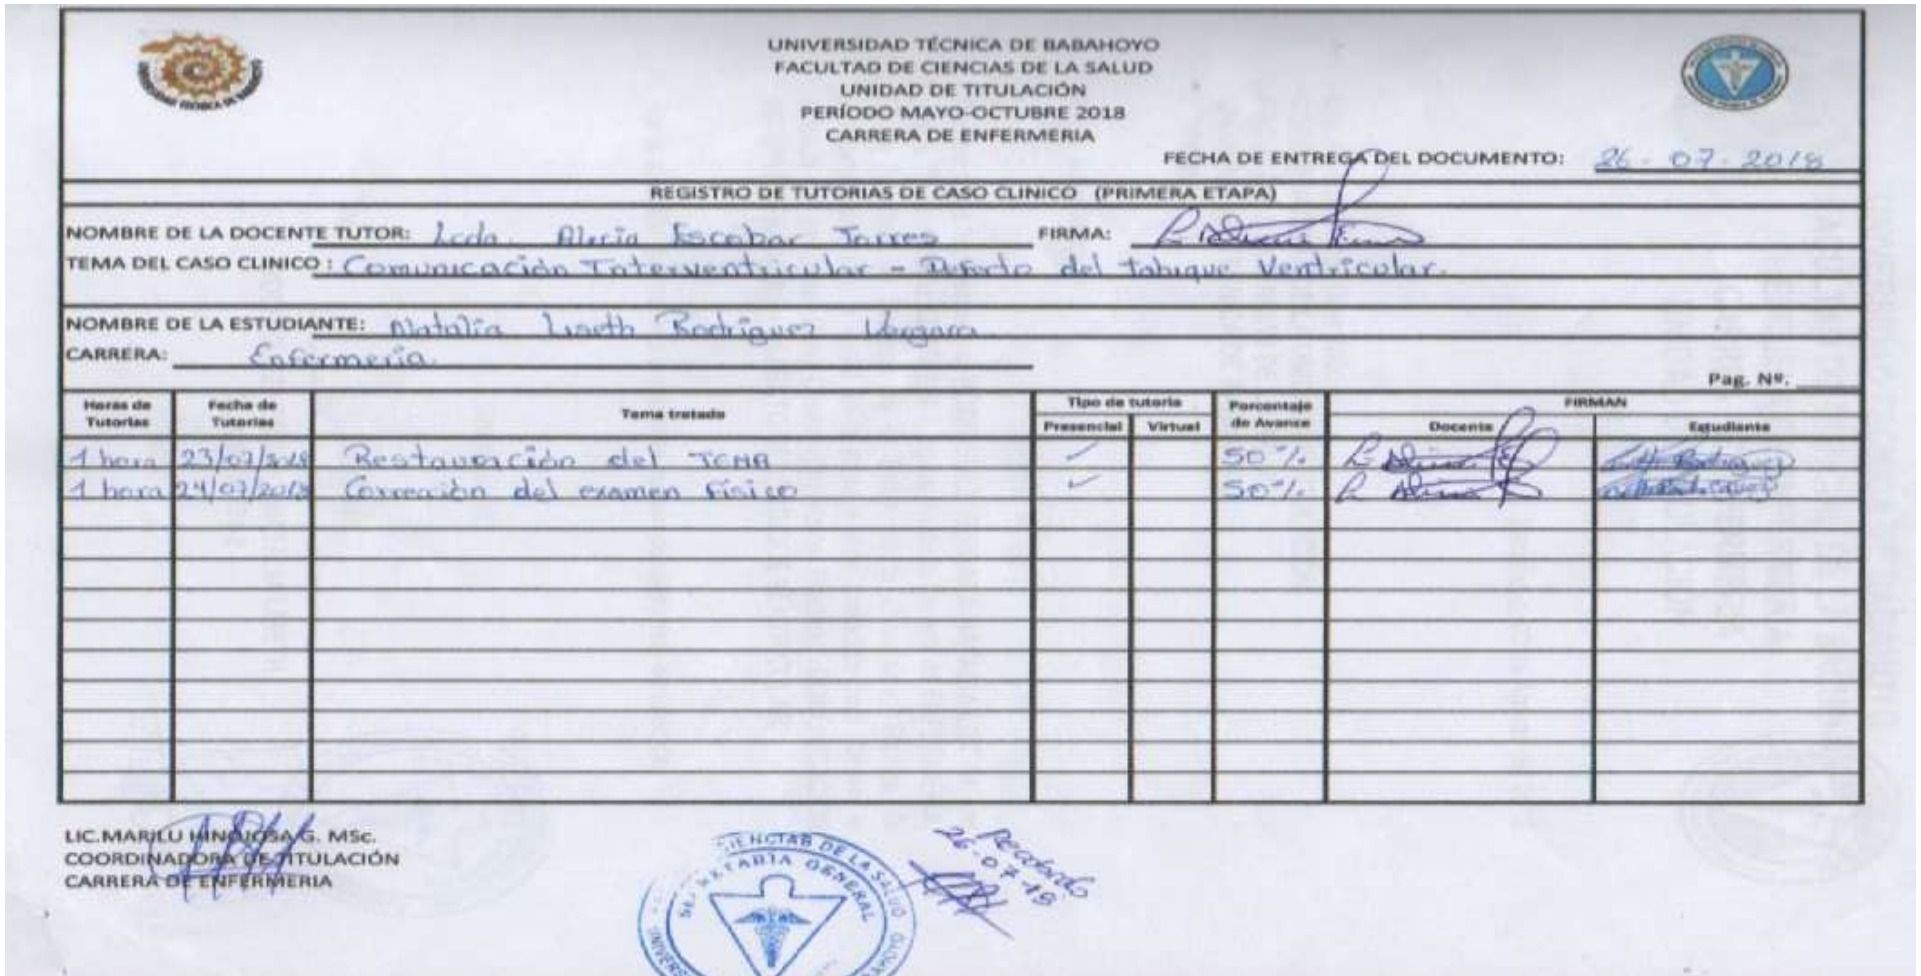 UNIVERSIDAD TÉCNICA DE BABAHOYO
FACULTAD DE CIENCIAS DE LA SALUD
UNIDAD DE TITULACIÓN
PERÍODO MAYO-OCTUBRE 2018
CARRERA DE ENFERMERIA
FECHA DE ENTREGA DEL DOCUMENTO: 26-07-2018
REGISTRO DE TUTORIAS DE CASO CLINICO (PRIMERA ETAPA)
NOMBRE DE LA DOCENTE TUTOR: Lcda. Alicia Escobar Torres FIRMA:
TEMA DEL CASO CLINICO : Comunicación Interventricular - Defecto del tabique Ventricular.
NOMBRE DE LA ESTUDIANTE: Natalia Liseth Rodriguez Vergara
CARRERA: Enfermeria.
Pag. Nº.
Horas de Tutorias Fecha de Tutorias Tema tratado Tipo de tutoria Porcentaje de Avance FIRMAN
Presencial Virtual Docente Estudiante
1 hora 23/07/2018 Restauración del TEMA ✓ 50%
1 hora 24/07/2018 Correción del examen Físico ✓ 50%
LIC.MARILU HINOJOSA G. MSc.
COORDINADORA DE TITULACIÓN
CARRERA DE ENFERMERIA
Recibido
26-07-18
CIENCIAS DE LA SALUD
SECRETARIA GENERAL